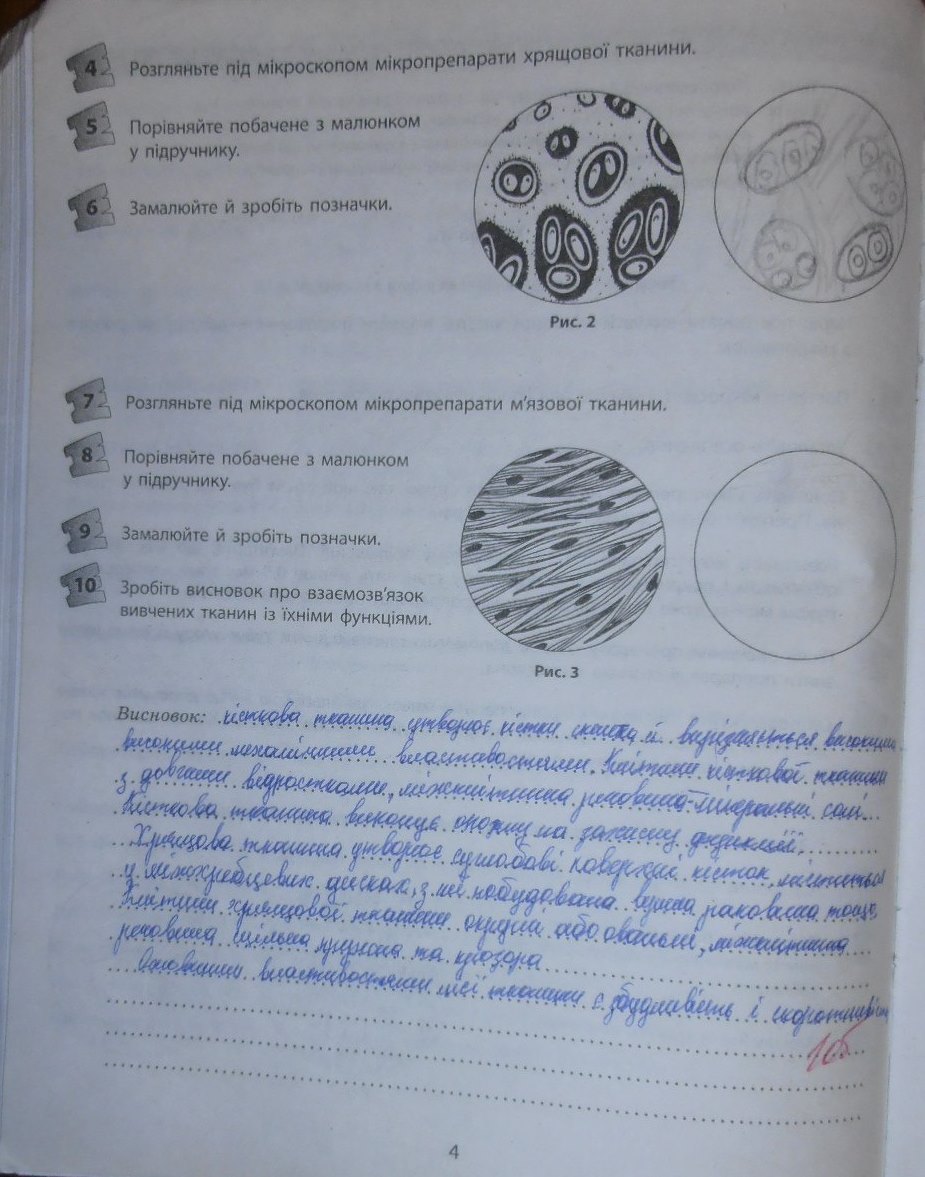 4 Розгляньте під мікроскопом мікропрепарати хрящової тканини.
5 Порівняйте побачене з малюнком
у підручнику.
6 Замалюйте й зробіть позначки.
Рис. 2
7 Розгляньте під мікроскопом мікропрепарати м'язової тканини.
8 Порівняйте побачене з малюнком
у підручнику.
9 Замалюйте й зробіть позначки.
10 Зробіть висновок про взаємозв'язок
вивчених тканин із їхніми функціями.
Рис. 3
Висновок: кісткова тканина утворює кістки скелета й вирізняється високими
високими механічними властивостями. Клітини кісткової тканини
з довгими відростками, міжклітинна речовина-мінеральні солі.
Кісткова тканина виконує опорну та захисну функції.
Хрящова тканина утворює суглобові поверхні кісток, міститься
у міжхребцевих дисках, з неї побудована вушна раковина тощо.
Клітини хрящової тканини округлі або овальні, міжклітинна
речовина щільна, пружна та прозора
Основними властивостями цієї тканини є збудливість і скоротливість
10б
4